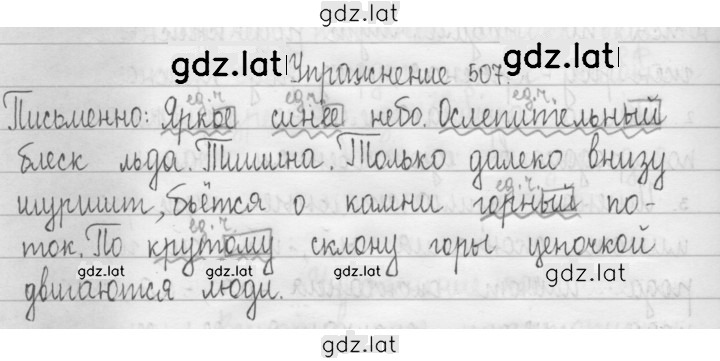 gdz.lat
gdz.lat gdz.lat
Упражнение 507.
ед.ч. ед.ч. ед.ч.
Письменно: Яркое синее небо. Ослепительный
блеск льда. Тишина. Только далеко внизу
ед.ч.
шуршит, бьётся о камни горный по-
ед.ч.
ток. По крутому склону горы цепочкой
gdz.lat gdz.lat gdz.lat gdz.lat
двигаются люди.
gdz.lat
gdz.lat